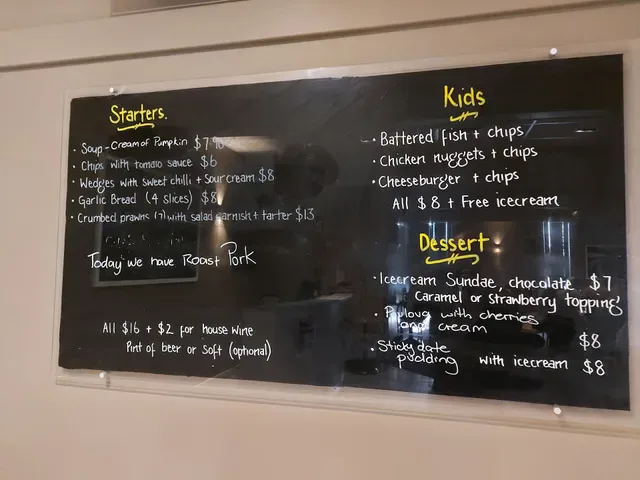 Starters.
• Soup - Cream of Pumpkin $7.90
• Chips with tomato sauce $6
• Wedges with sweet chilli + Sour cream $8
• Garlic Bread (4 slices) $8
• Crumbed prawns (7) with salad garnish + tarter $13
Today we have Roast Pork
All $16 + $2 for house wine
Pint of beer or Soft (optional)
Kids
• Battered fish + chips
• Chicken nuggets + chips
• Cheeseburger + chips
All $8 + Free icecream
Dessert
• Icecream Sundae, chocolate $7
Caramel or strawberry topping
• Pavlova with cherries
and cream $8
• Sticky date
pudding with icecream $8